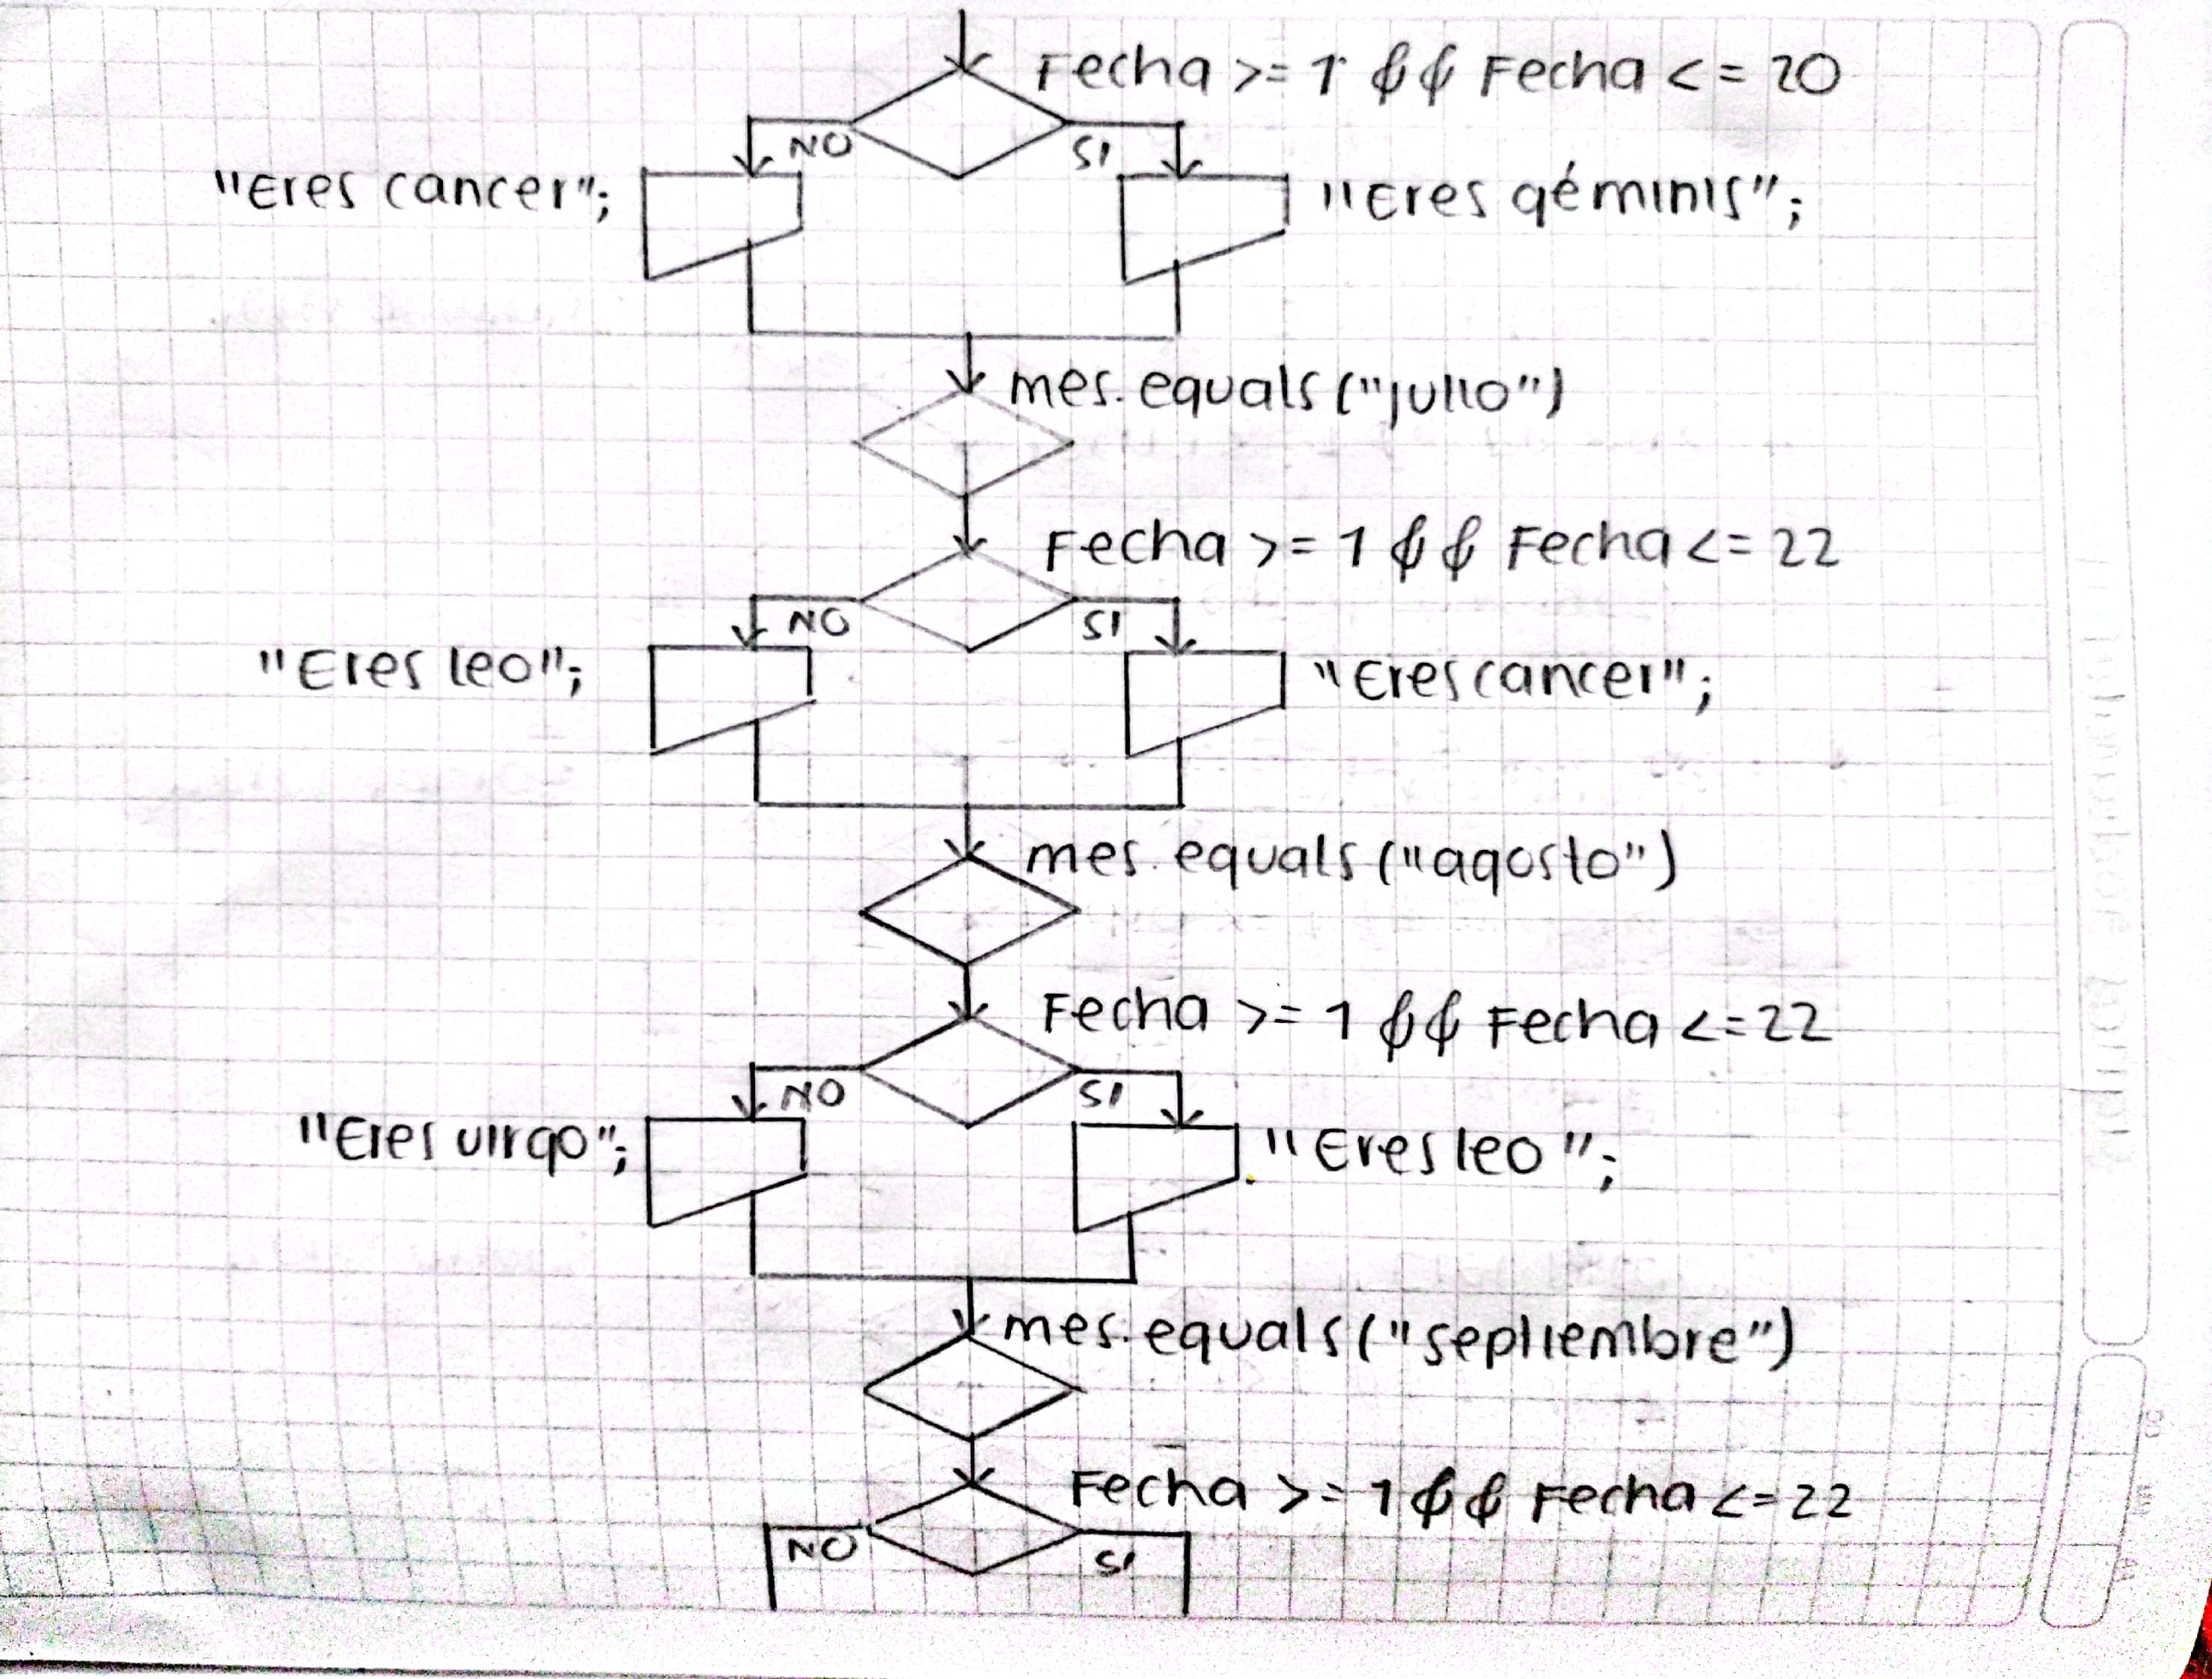 Fecha >= 1 && Fecha <= 20
NO
SI
"Eres cancer";
"Eres géminis";
mes.equals("julio")
Fecha >= 1 && Fecha <= 22
NO
SI
"Eres leo";
"Eres cancer";
mes.equals("agosto")
Fecha >= 1 && Fecha <= 22
NO
SI
"Eres virgo";
"Eres leo";
mes.equals("septiembre")
Fecha >= 1 && Fecha <= 22
NO
SI